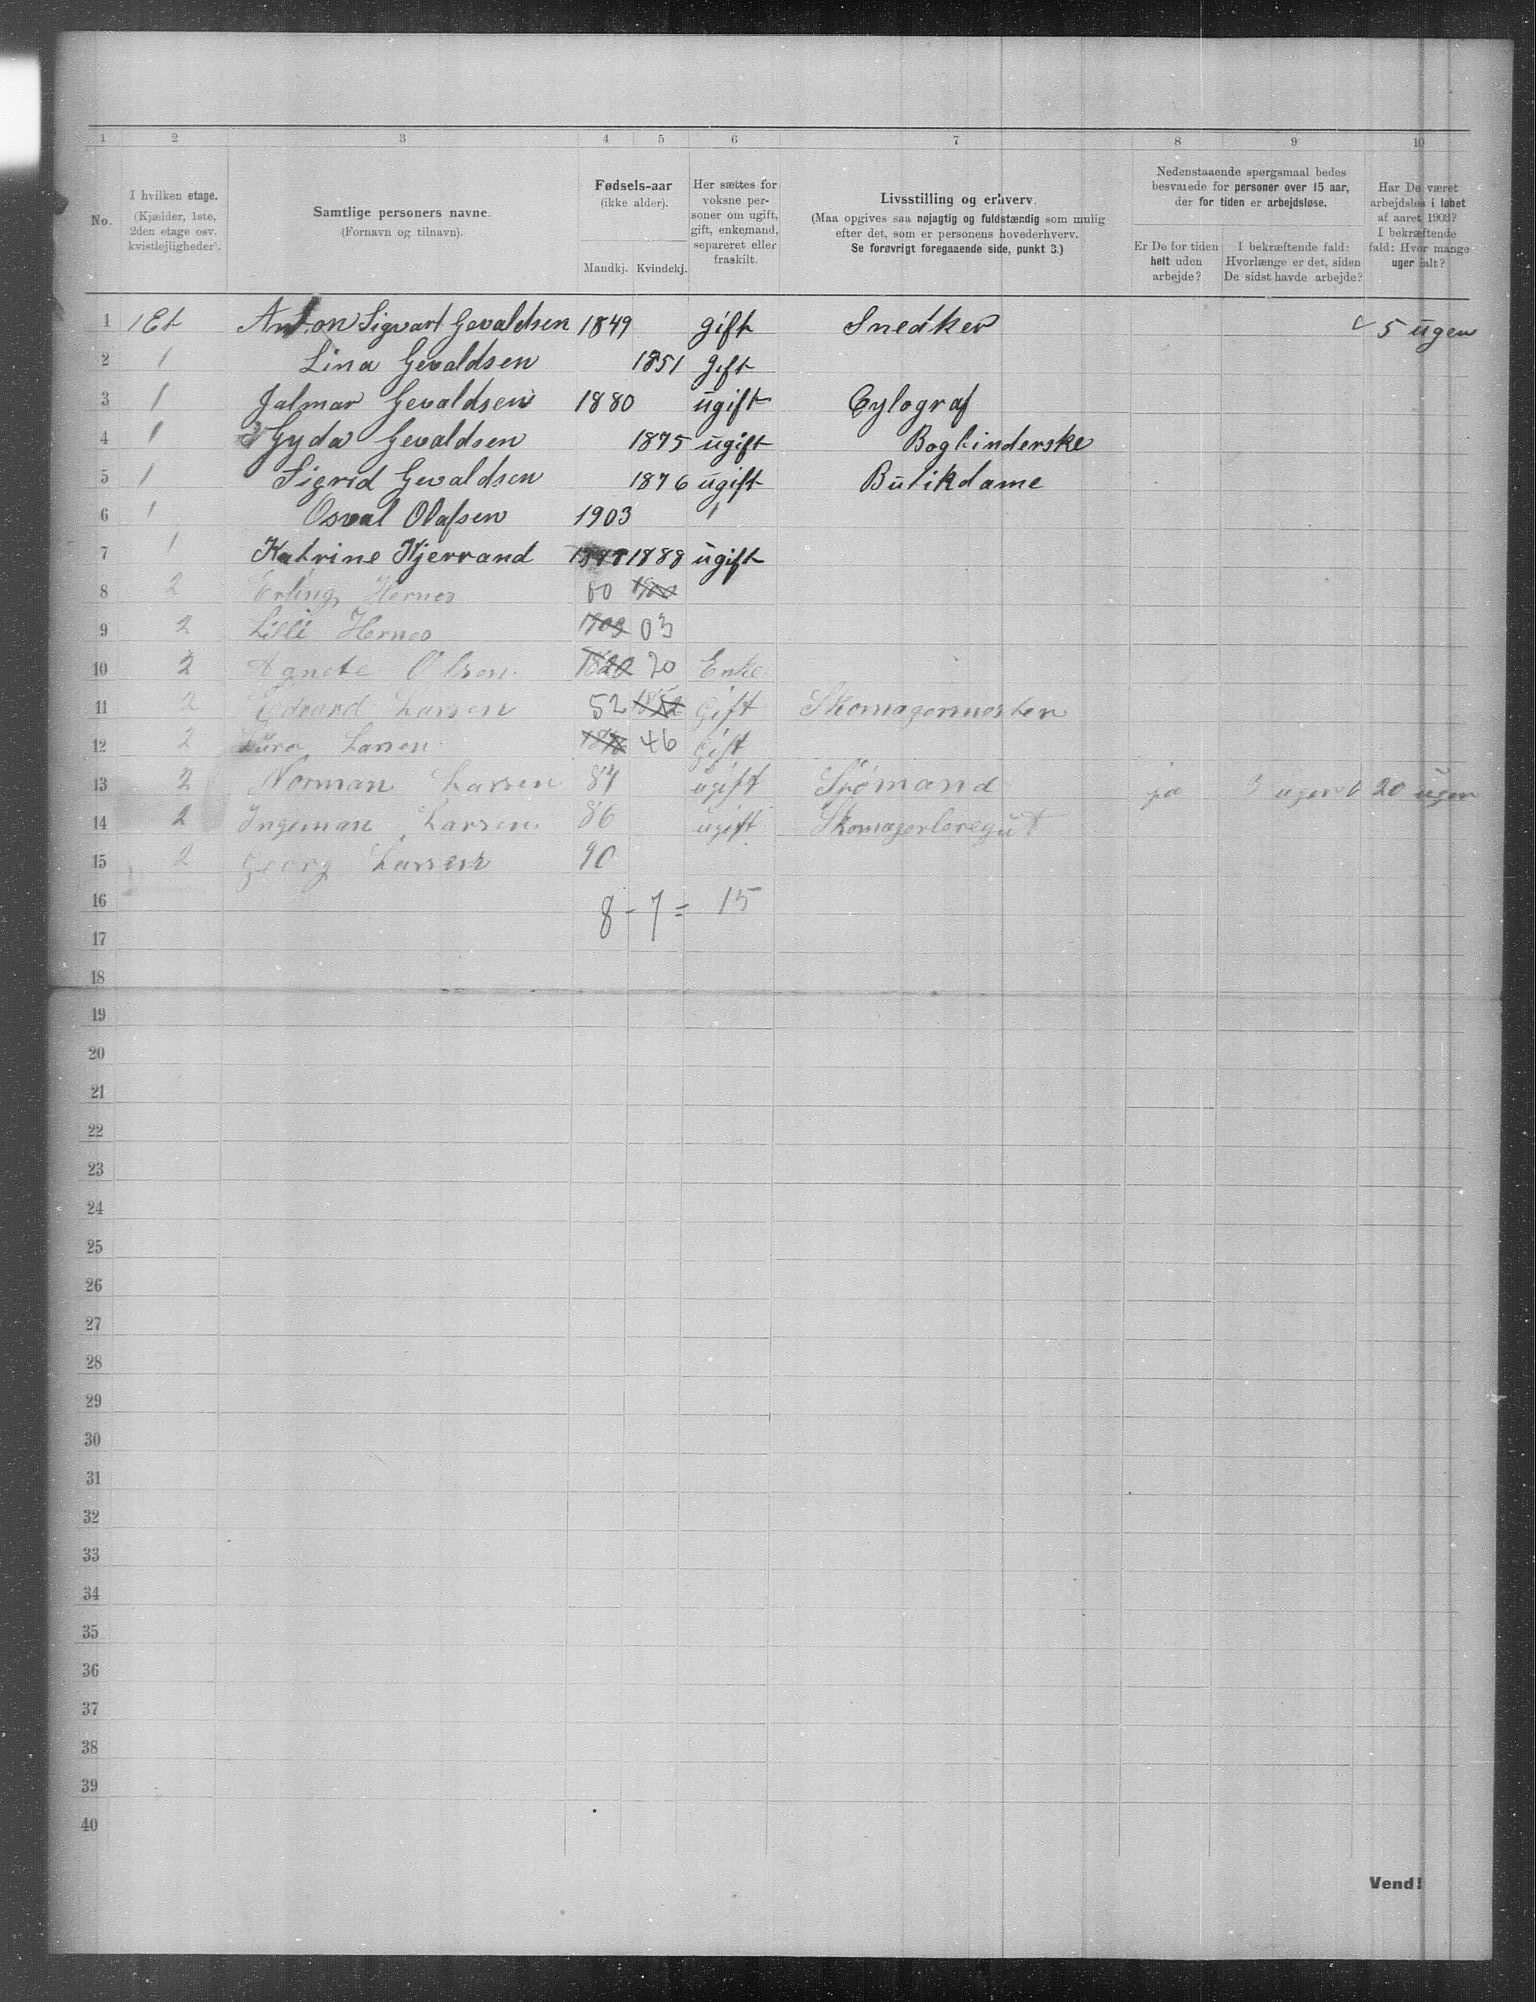 1 2 3 4 5 6 7 8 9 10
No.
I hvilken etage.
(Kjælder, 1ste,
2den etage osv.
kvistlejligheder).
Samtlige personers navne.
(Fornavn og tilnavn).
Fødsels-aar
(ikke alder).
Mandkj. Kvindekj.
Her sættes for
voksne per-
soner om ugift,
gift, enkemand,
separeret eller
fraskilt.
Livsstilling og erhverv.
(Maa opgives saa nøjagtig og fuldstændig som mulig
efter det, som er personens hovederhverv.
Se forøvrigt foregaaende side, punkt 3.)
Nedenstaaende spørgsmaal bedes
besvarede for personer over 15 aar,
der for tiden er arbejdsløse.
Er De for tiden
helt uden
arbejde?
I bekræftende fald:
Hvorlænge er det, siden
De sidst havde arbejde?
Har De været
arbejdsløs i løbet
af aaret 1903?
I bekræftende
fald: Hvor mange
uger ialt?
1 1 Et Anton Sigvart Gevaldsen 1849 gift Snedker 5 ugen
2 1 Lina Gevaldsen 1851 gift
3 1 Jalmar Gevaldsen 1880 ugift Cylograf
4 1 Gyda Gevaldsen 1875 ugift Bogbinderske
5 1 Sigrid Gevaldsen 1876 ugift Butikdame
6 1 Osval Olafsen 1903 1
7 1 Katrine Kjerrand 1888 ugift
8 2 Erling Hernes 00 1900
9 2 Lilli Hernes 1903 03
10 2 Agnete Olsen 1820 20 Enke
11 2 Edvard Larsen 52 1852 Gift Skomagermester
12 2 Larsen 46 Gift
13 2 Norman Larsen 84 ugift Sjømand ja 3 uger 20 ugen
14 2 Ingeman Larsen 86 ugift Skomagerleregut
15 2 Georg Larsen 90
16 8 - 7 = 15
17
18
19
20
21
22
23
24
25
26
27
28
29
30
31
32
33
34
35
36
37
38
39
40
Vend!